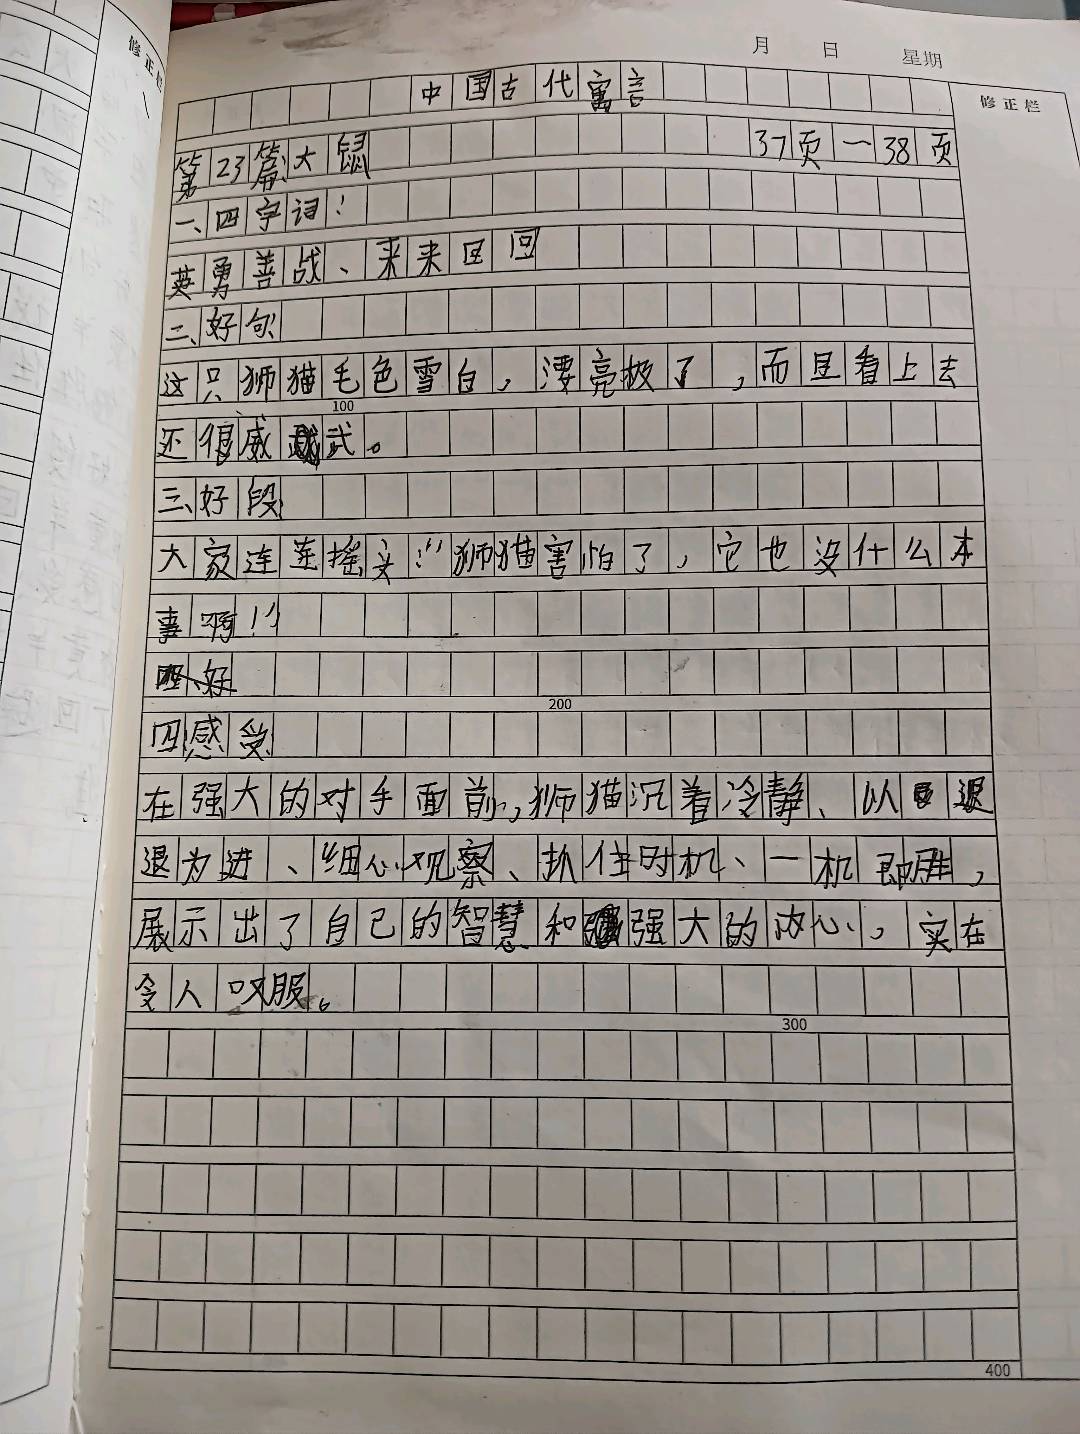 月 日 星期
修正栏
修正栏
中国古代寓言
第23篇大鼠 37页一38页
一、四字词!
英勇善战、来来回回
二、好句
这只狮猫毛色雪白,漂亮极了,而且看上去
100
还很威武。
三、好段
大家连连摇头:“狮猫害怕了,它也没什么本
事啊!”
四、好
200
四感受
在强大的对手面前,狮猫沉着冷静、以退
退为进、细心观察、抓住时机、一机即胜,
展示出了自己的智慧和强大的内心,实在
令人叹服。
300
400